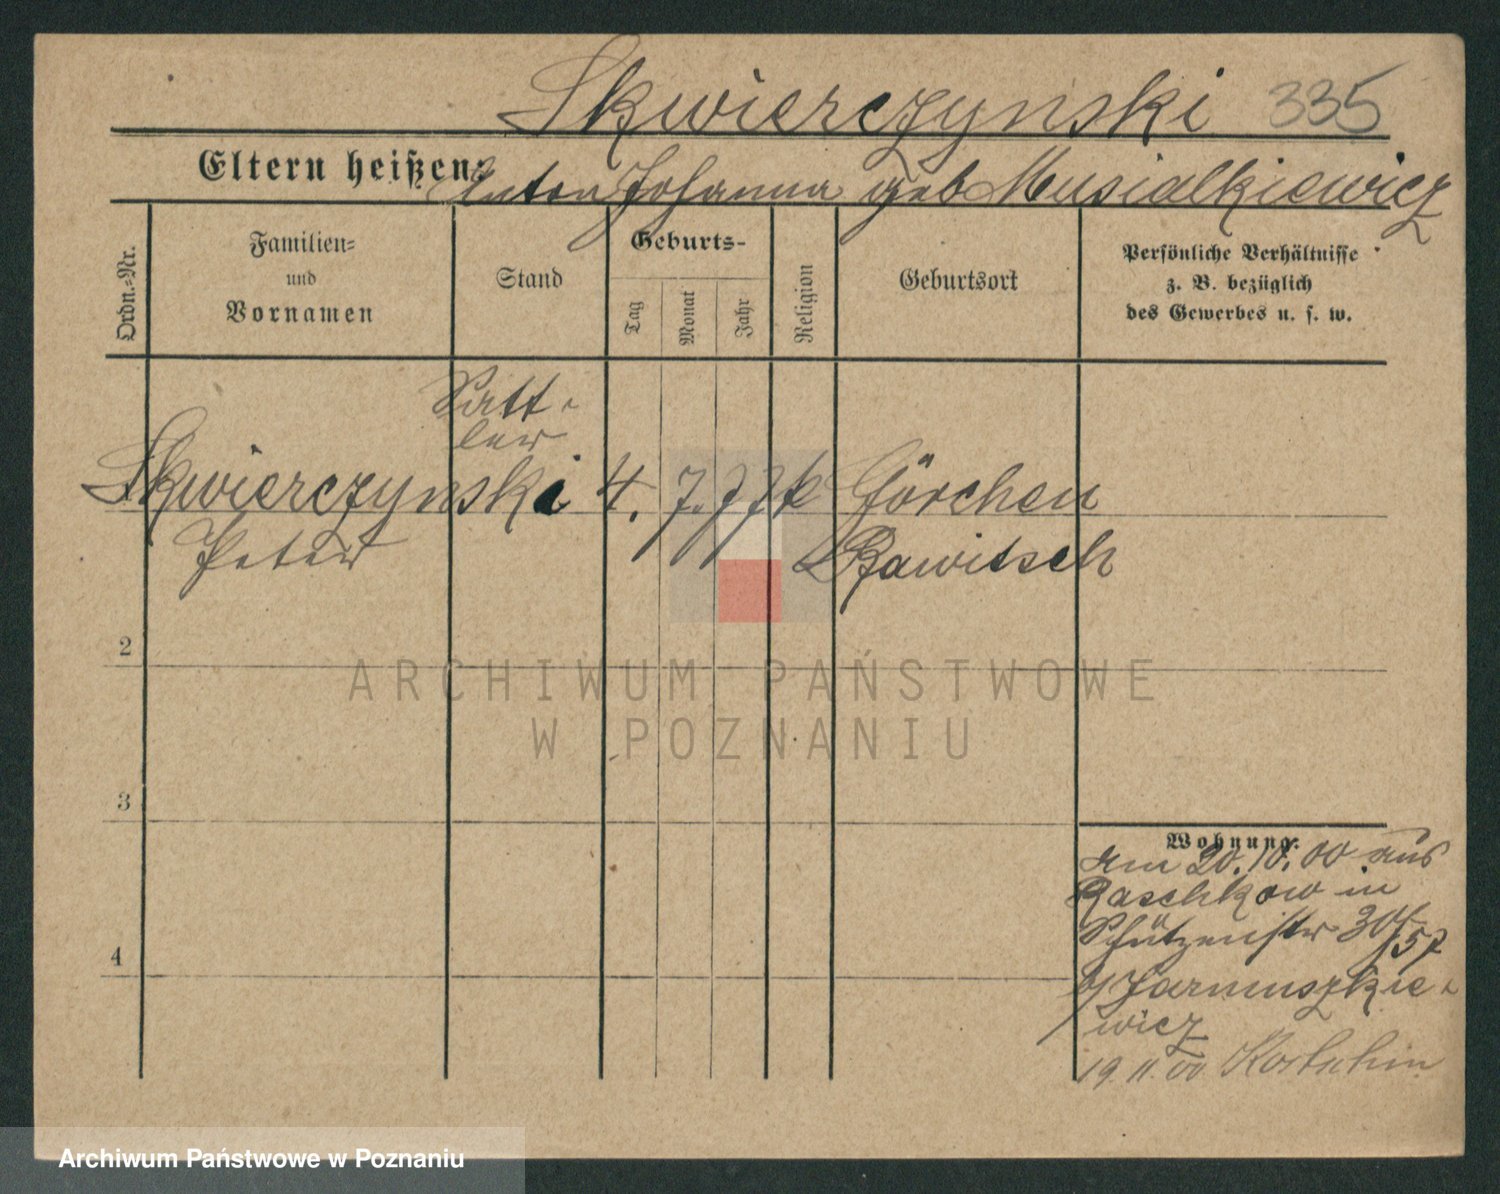 Skwierczynski 335
Eltern heißen: Anton Johanna geb Musialkiewicz
Ordn.-Nr.
Familien-
und
Vornamen
Stand
Geburts-
Tag
Monat
Jahr
Religion
Geburtsort
Persönliche Verhältnisse
z. B. bezüglich
des Gewerbes u. s. w.
Satt-
ler
Skwierczynski 4. 7. 77 k Görchen
Peter Rawitsch
2
3
4
Wohnung:
am 20.10.00 aus
Raschkow in
Schützenstr 30/
b/ Jarmuszkie-
wicz
19.11.00 Kostschin
ARCHIWUM PAŃSTWOWE
W POZNANIU
Archiwum Państwowe w Poznaniu